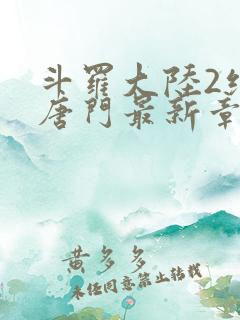 斗羅大陸2絕
唐門最新章
黃多多
未任同意禁止轉載